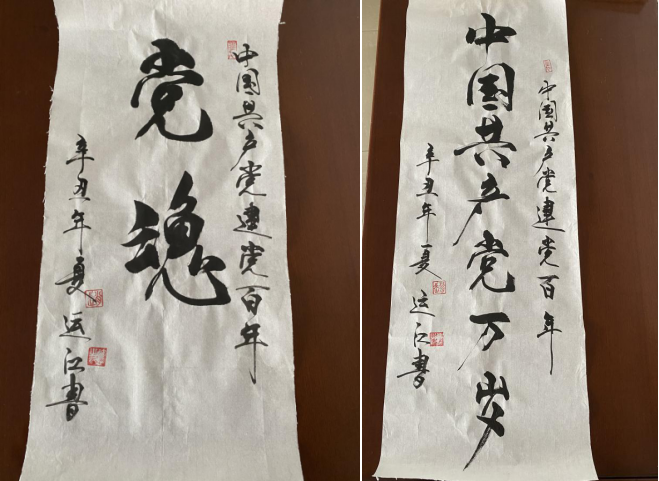 中国共产党建党百年
党魂
辛丑年夏
运江书
中国共产党建党百年
中国共产党万岁
辛丑年夏
运江书